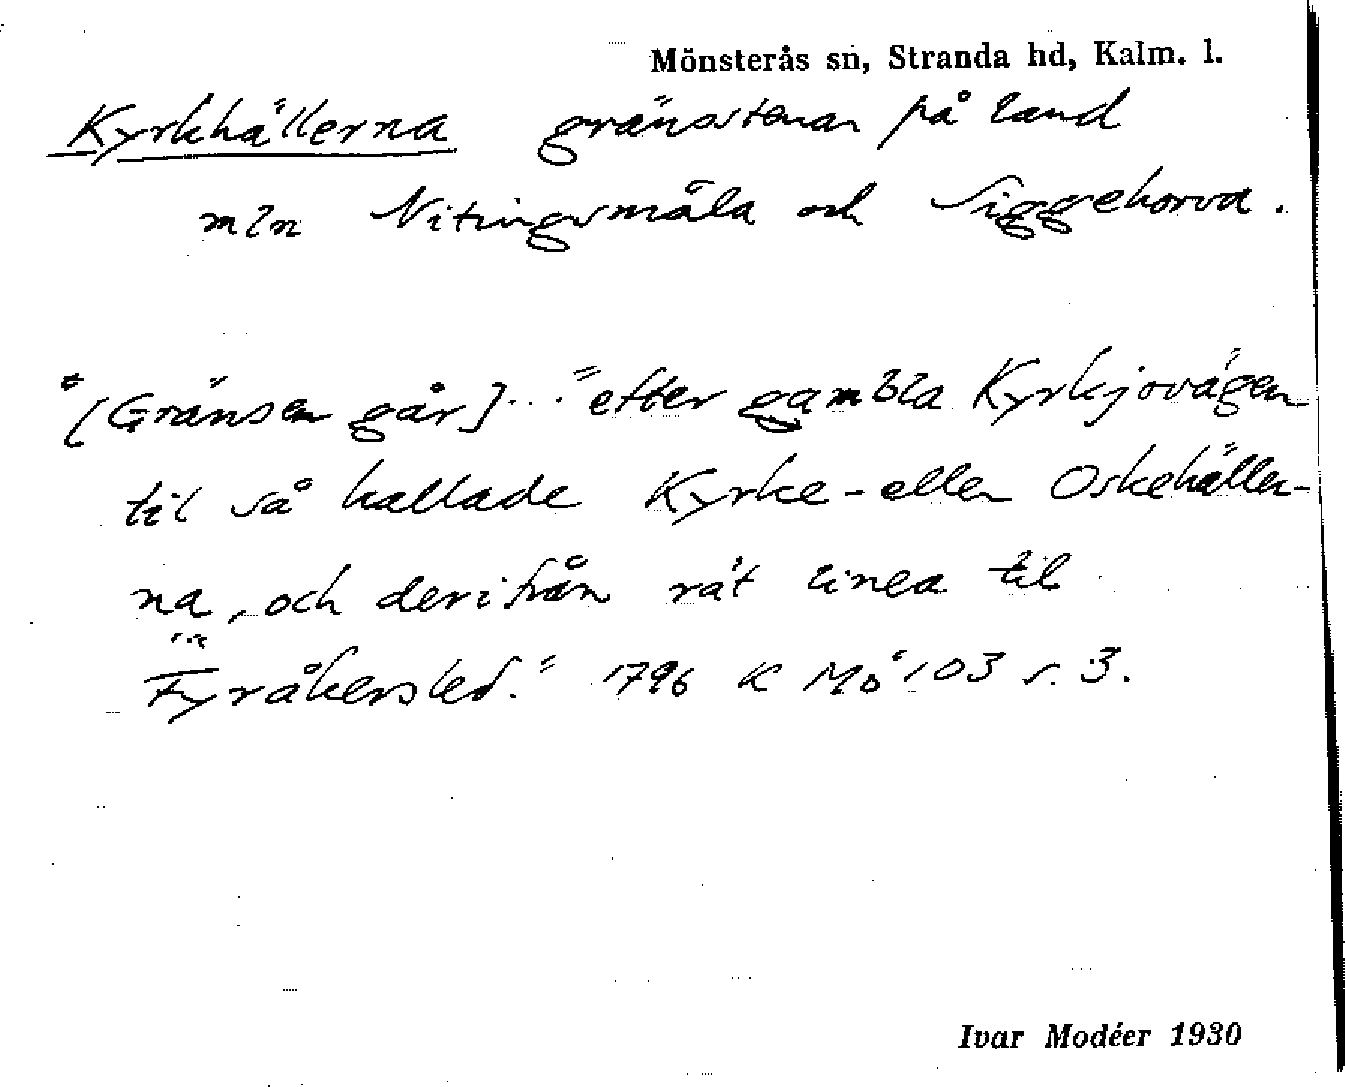 Mönsterås sn, Stranda hd, Kalm. l.
Kyrkhällerna gränsstenar på land
mln Nitingsmåla och Siggehorva.
"[Gränsen går]..."efter gambla Kyrkjovägen
til så kallade Kyrke- eller Oskehäller-
na, och derifrån rät linea til
Fyråkersled." 1796 K Mö 103 s. 3.
Ivar Modéer 1930